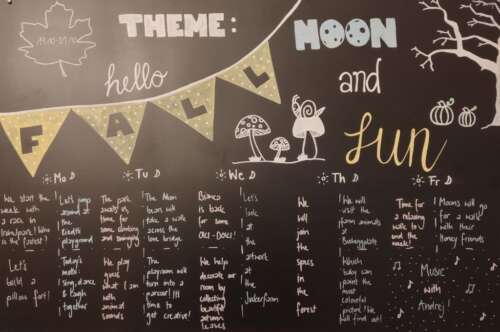 19.10-21.10
THEME: MOON
hello
and
FALL
sun
Mo
Tu
We
Th
Fr
We start the
week with
a race in
transport! Who
is the fastest?
Let's jump
around at
the
playground
The park
awaits us,
time for
some climbing
and swinging
The Moon
bears will
take a walk
across the
love bridge
Bianca
is back
for some
Let's
look
at
the
artwork
at
the
We
will
join
the
in
the
forest
We will
visit the
farm animals
at
Time for
a relaxing
walk to
end the
week!
Moons will go
for a walk
with their
Honey Friends
Let's
build a
pillow fort!
Today's
motto:
Sing, dance
& laugh
together
We play
guess
what I am
with
animal
sounds
The
playroom will
turn into a
time to
get creative!
We help
decorate our
room by
collecting
beautiful
autumn
leaves
Which
baby can
paint the
most
colourful
picture? We
will find out!
Music
with
Andrej!